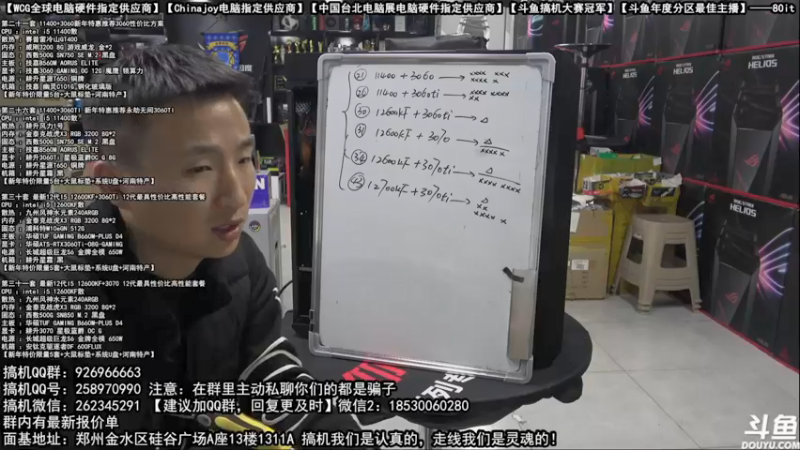 【WCG全球电脑硬件指定供应商】【Chinajoy电脑指定供应商】【中国台北电脑展电脑硬件指定供应商】【斗鱼搞机大赛冠军】【斗鱼年度分区最佳主播】——80it
第二十一套 11400+3060新年特惠推荐3060性价比方案
CPU : intel i5 11400散
散热 : 赛普雷冷山GT400
内存 : 威刚3200 8G 游戏威龙 金*2
固态 : 西数500G SN750 SE M.2 黑盘
主板 : 技嘉B560M AORUS ELITE
显卡 : 技嘉3060 GAMING OC 12G 魔鹰 锁算力
电源 : 耕升星源T650 铜牌
【新年特价限量5台+大鼠标垫+系统U盘+河南特产】
第二十六套 11400+3060Ti 新年特惠推荐永劫无间3060Ti
CPU : intel i5 11400散
散热 : 耕升风力1号
内存 : 金泰克战虎X3 RGB 3200 8G*2
固态 : 西数500G SN750 SE M.2 黑盘
主板 : 技嘉B560M AORUS ELITE
显卡 : 耕升3060Ti 星极蓝爵OC G 8G
电源 : 耕升星源T650 铜牌
机箱 : 耕升星霜 黑
【新年特价限量5台+大鼠标垫+系统U盘+河南特产】
第三十套 最新12代I5 12600KF+3060Ti 12代最具性价比高性能套餐
CPU : intel i5 12600KF散
散热 : 九州风神水元素240ARGB
内存 : 金泰克战虎X3 RGB 3200 8G*2
主板 : 华硕TUF GAMING B660M-PLUS D4
显卡 : 华硕ATS-RTX3060Ti-O8G-GAMING
电源 : 长城超级巨龙S6 金牌全模 650W
机箱 : 耕升星霜 黑
【新年特价限量5套+大鼠标垫+系统U盘+河南特产】
第三十一套 最新12代I5 12600KF+3070 12代最具性价比高性能套餐
CPU : intel i5 12600KF散
散热 : 九州风神水元素240ARGB
内存 : 金泰克战虎X3 RGB 3200 8G*2
固态 : 西数500G SN850 M.2 黑盘
主板 : 华硕TUF GAMING B660M-PLUS D4
显卡 : 耕升3070 星极蓝爵 OC G
电源 : 长城超级巨龙S6 金牌全模 650W
机箱 : 安钛克驱逐者DF 600FLUX
【新年特价限量5套+大鼠标垫+系统U盘+河南特产】
㉑ 11400+3060 → xxxx xxx x
㉖ 11400+3060ti → xxxx xxxx xx
㉚ 12600KF+3060ti → △
㉛ 12600KF+3070 → △ xxxx x
12600KF+3070ti → △ xxxx x
12700KF+3070ti → △ xx xxxx x
PREDATOR
HELIOS
搞机QQ群: 926966663
搞机QQ号: 258970990 注意: 在群里主动私聊你们的都是骗子
搞机微信: 262345291 【建议加QQ群, 回复更及时】微信2: 18530060280
群内有最新报价单
面基地址: 郑州金水区硅谷广场A座13楼1311A 搞机我们是认真的, 走线我们是灵魂的!
斗鱼
DOUYU.COM